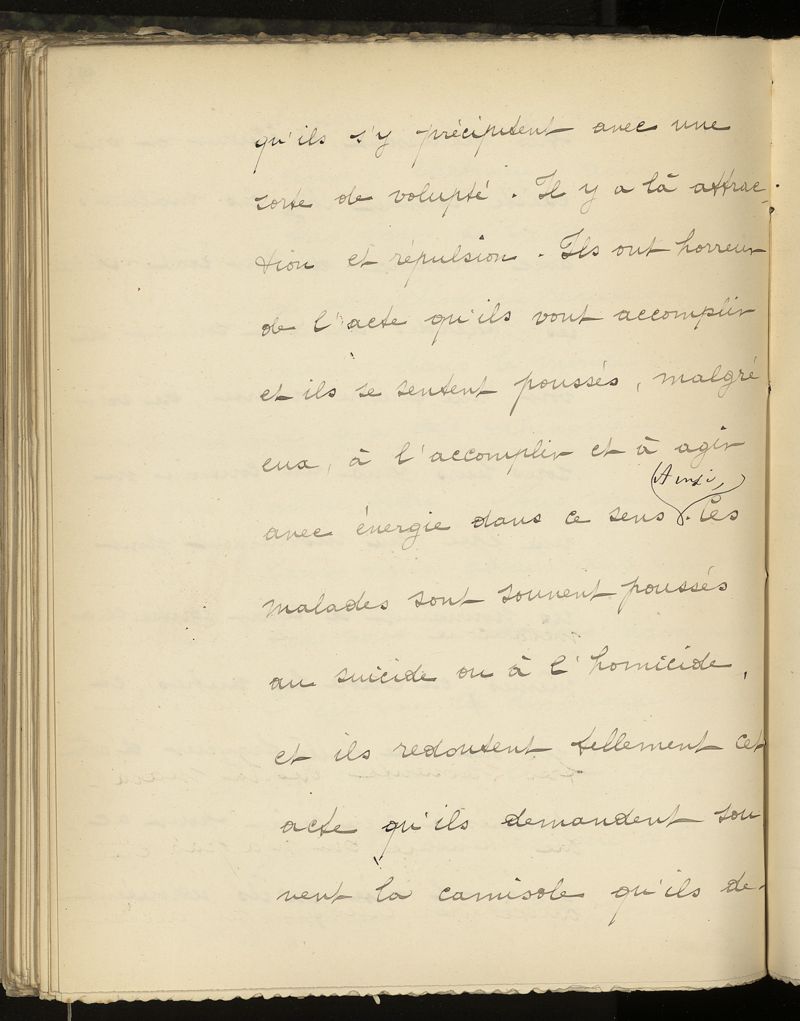 qu'ils s'y précipitent avec une
sorte de volupté. Il y a là attrac-
tion et répulsion. Ils ont horreur
de l'acte qu'ils vont accomplir
et ils se sentent poussés, malgré
eux, à l'accomplir et à agir
(Ainsi,)
avec énergie dans ce sens. Ces
malades sont souvent poussés
au suicide ou à l'homicide,
et ils redoutent tellement cet
acte qu'ils demandent sou
vent la camisole qu'ils de-